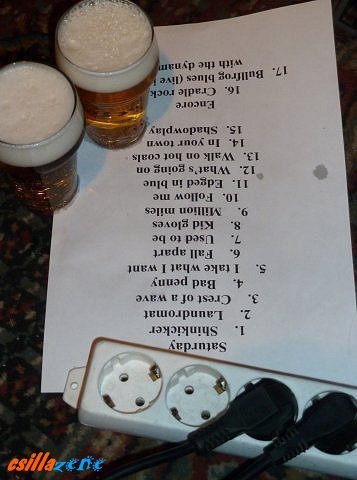 Saturday
1. Shinkicker
2. Laundromat
3. Crest of a wave
4. Bad penny
5. I take what I want
6. Fall apart
7. Used to be
8. Kid gloves
9. Million miles
10. Follow me
11. Edged in blue
12. What's going on
13. Walk on hot coals
14. In your town
15. Shadowplay
Encore
16. Cradle rock
17. Bullfrog blues (live
with the
csillazone